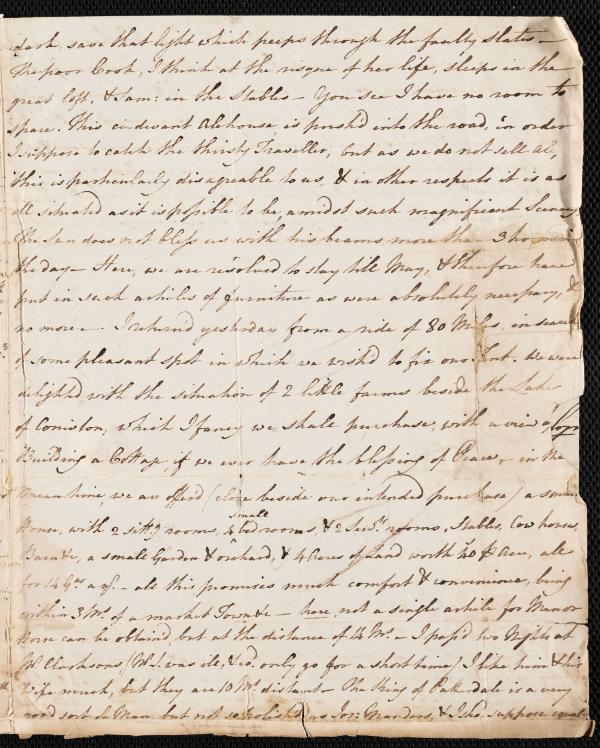 dark, save that light which peeps through the faulty slates –
The poor Cook, I think at the risque of her life, sleeps in the
great loft, & Sam: in the Stables – You see I have no room to
spare. This ci-devant Alehouse is push'd into the road, in order
I suppose to catch the thirsty Traveller, but as we do not sell Ale,
this is particularly disagreable to us, & in other respects it is as
ill situated as it is possible to be, amidst such magnificent Scenery
The Sun does not bless us with his beams more than 3 hours in
the day – Here, we are resolved to stay till May, & therefore have
put in such articles of furniture as were absolutely necessary, &
no more – I return'd yesterday from a ride of 80 Miles, in search
of some pleasant spot in which we wish'd to fix our Tent. We were
delighted with the situation of 2 little farms beside the Lake
of Coniston, which I fancy we shall purchase, with a view of
Building a Cottage, if we ever have the blessing of Peace, – in the
mean time, we are offerd (close beside our intended purchase) a small
House, with 2 sittg rooms, 4 small bed rooms, & 2 Servts rooms, Stables, Cow house,
Barn &c, a small Garden & orchard, & 4 Acres of Land worth 40 p Acre, all
for 14 Gs a yr. – all this promises much comfort & convenience, being
within 3 Ms. of a market Town &c – here, not a single article for Man or
Horse can be obtaind, but at the distance of 14 Ms. – I pass'd two Nights at
Mr Clarksons (W.S. was ile, & cod. only go for a short time) I like him & his
Wife much, but they are 10 Ms. distant – The King of Patterdale is a very
good sort of Man but not so polish'd as Jos: Marders, & I shd. suppose equal